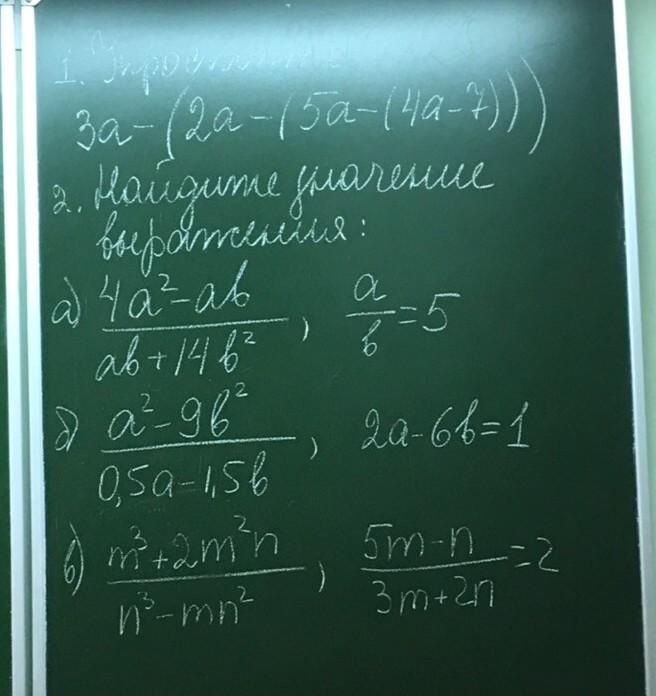 1. Упростите
3a-(2a-(5a-(4a-7)))
2. Найдите значение
выражения:
а) (4a²-ab)/(ab+14b²), a/b=5
б) (a²-9b²)/(0,5a-1,5b), 2a-6b=1
в) (m³+2m²n)/(n³-mn²), (5m-n)/(3m+2n)=2